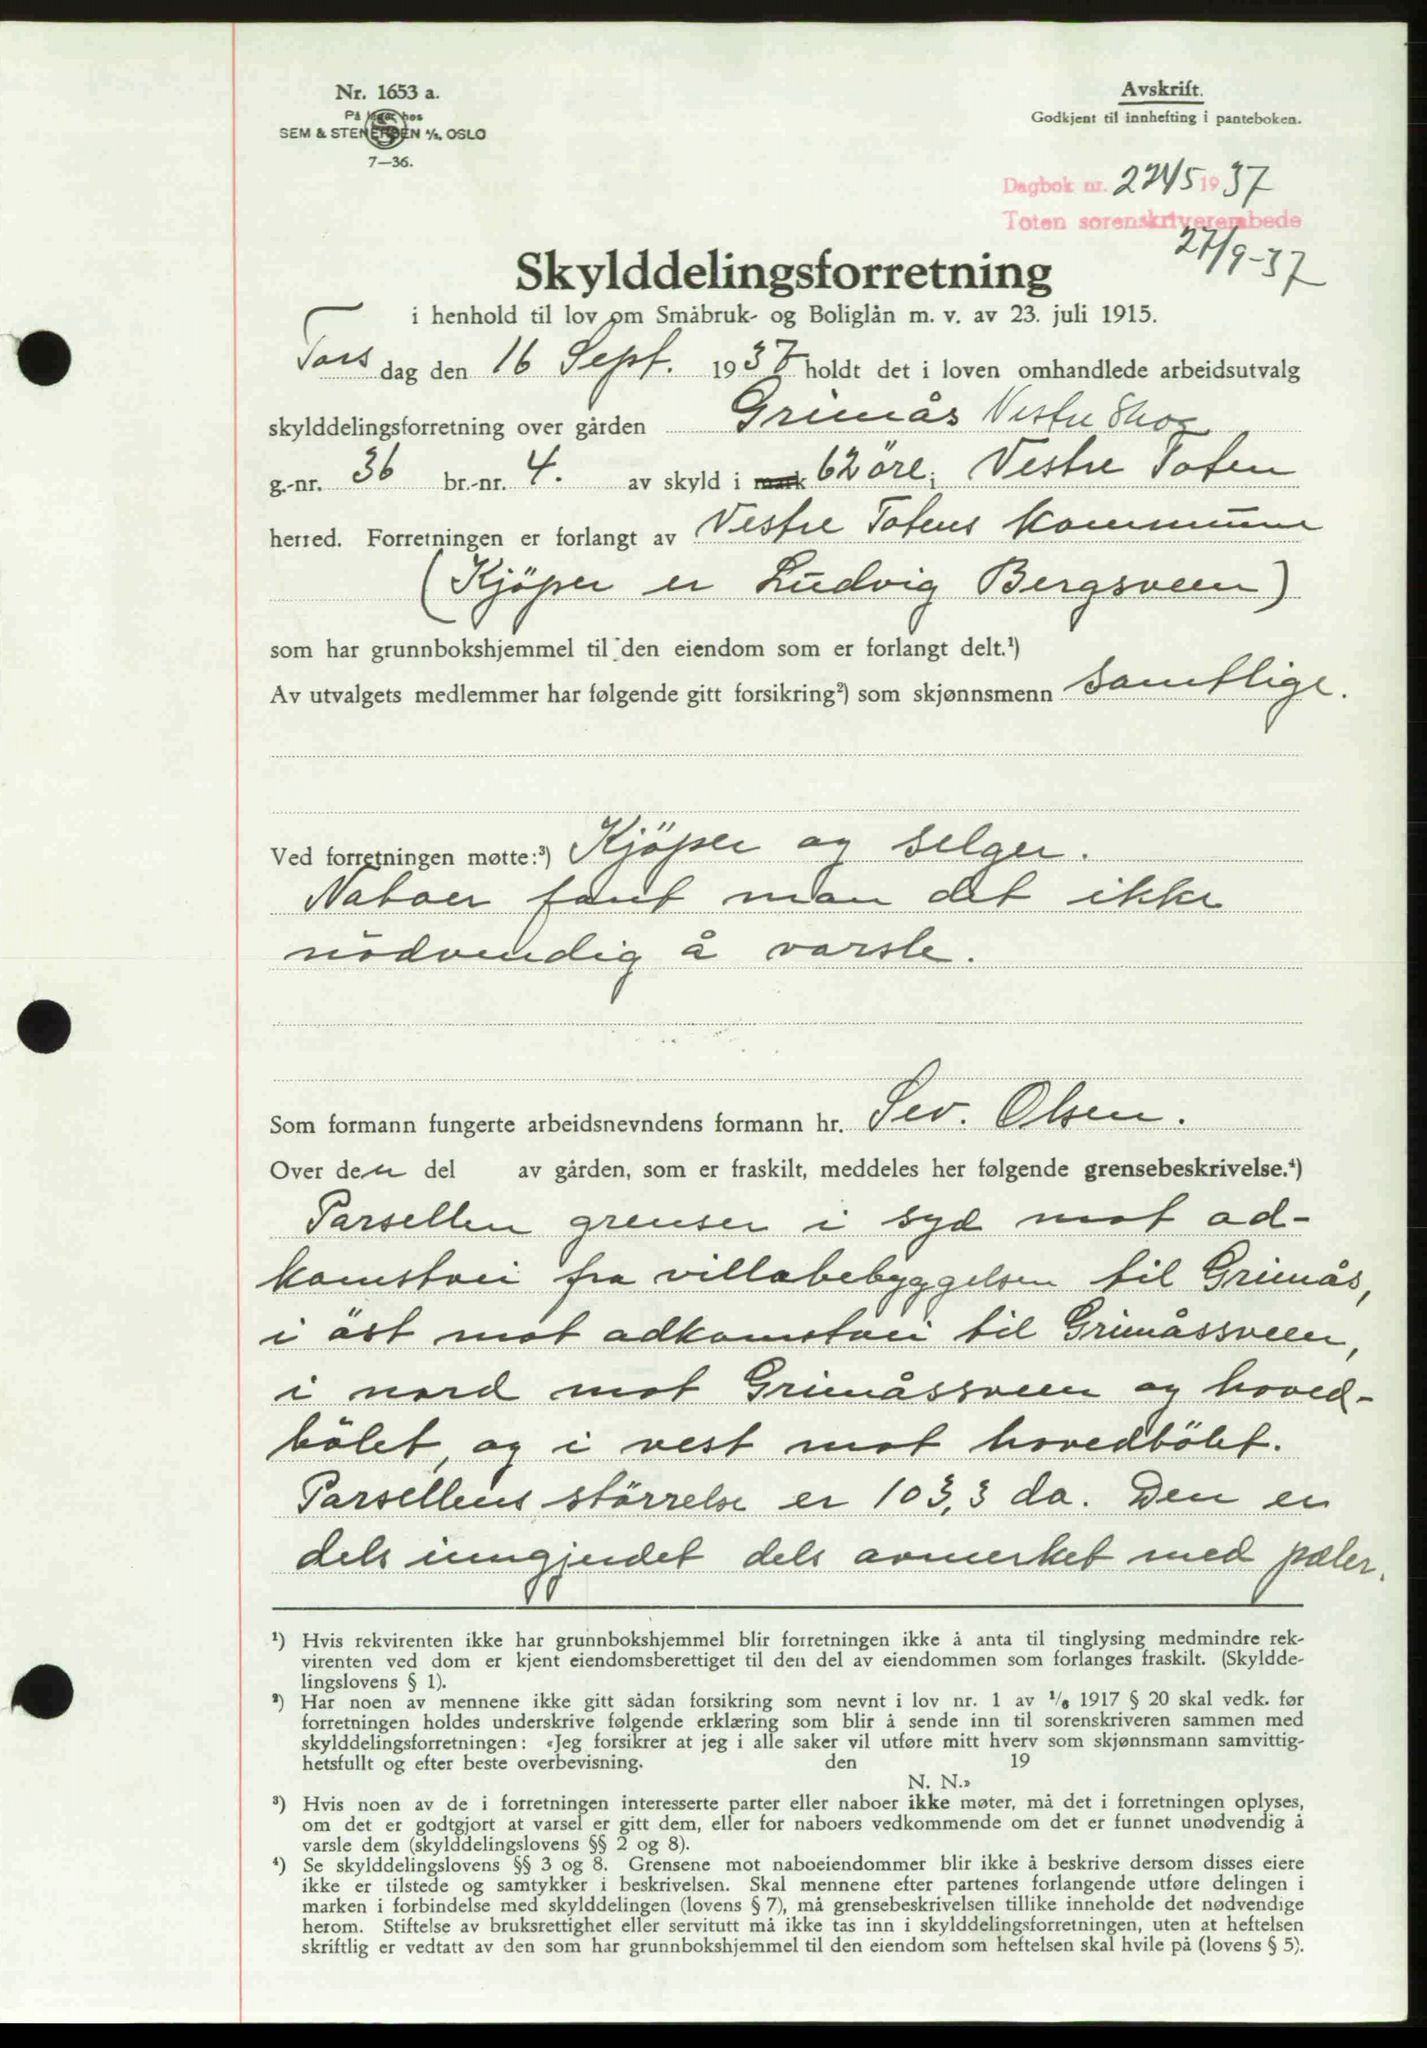 Nr. 1653 a.
På lager hos
SEM & STENERSEN A/S, OSLO
7—36.
Avskrift.
Godkjent til innhefting i panteboken.
Dagbok nr. 2245 1937
Toten sorenskriverembede
27/9-37
Skylddelingsforretning
i henhold til lov om Småbruk- og Boliglån m. v. av 23. juli 1915.
Torsdag den 16 Sept. 1937 holdt det i loven omhandlede arbeidsutvalg
skylddelingsforretning over gården Grimås Vestre Skog
g.-nr. 36 br.-nr. 4. av skyld i mark 62 öre, i Vestre Toten
herred. Forretningen er forlangt av Vestre Totens kommune
(Kjöper er Ludvig Bergsveen)
som har grunnbokshjemmel til den eiendom som er forlangt delt.¹)
Av utvalgets medlemmer har følgende gitt forsikring²) som skjønnsmenn samtlige.
Ved forretningen møtte:³) Kjöper og selger.
Naboer fant man det ikke
nödvendig å varsle.
Som formann fungerte arbeidsnevndens formann hr. Sev. Olsen.
Over den del av gården, som er fraskilt, meddeles her følgende grensebeskrivelse.⁴)
Parsellen grenser i syd mot ad-
komstvei fra villabebyggelsen til Grimås,
i öst mot adkomstvei til Grimåssveen,
i nord mot Grimåssveen og hoved-
bölet, og i vest mot hovedbölet.
Parsellens störrelse er 103,3 da. Den er
dels inngjerdet dels avmerket med pæler.
¹) Hvis rekvirenten ikke har grunnbokshjemmel blir forretningen ikke å anta til tinglysing medmindre rek-
virenten ved dom er kjent eiendomsberettiget til den del av eiendommen som forlanges fraskilt. (Skyldde-
lingslovens § 1).
²) Har noen av mennene ikke gitt sådan forsikring som nevnt i lov nr. 1 av ¹/₆ 1917 § 20 skal vedk. før
forretningen holdes underskrive følgende erklæring som blir å sende inn til sorenskriveren sammen med
skylddelingsforretningen: «Jeg forsikrer at jeg i alle saker vil utføre mitt hverv som skjønnsmann samvittig-
hetsfullt og efter beste overbevisning. den 19
N. N.»
³) Hvis noen av de i forretningen interesserte parter eller naboer ikke møter, må det i forretningen oplyses,
om det er godtgjort at varsel er gitt dem, eller for naboers vedkommende om det er funnet unødvendig å
varsle dem (skylddelingslovens §§ 2 og 8).
⁴) Se skylddelingslovens §§ 3 og 8. Grensene mot naboeiendommer blir ikke å beskrive dersom disses eiere
ikke er tilstede og samtykker i beskrivelsen. Skal mennene efter partenes forlangende utføre delingen i
marken i forbindelse med skylddelingen (lovens § 7), må grensebeskrivelsen tillike inneholde det nødvendige
herom. Stiftelse av bruksrettighet eller servitutt må ikke tas inn i skylddelingsforretningen, uten at heftelsen
skriftlig er vedtatt av den som har grunnbokshjemmel til den eiendom som heftelsen skal hvile på (lovens § 5).